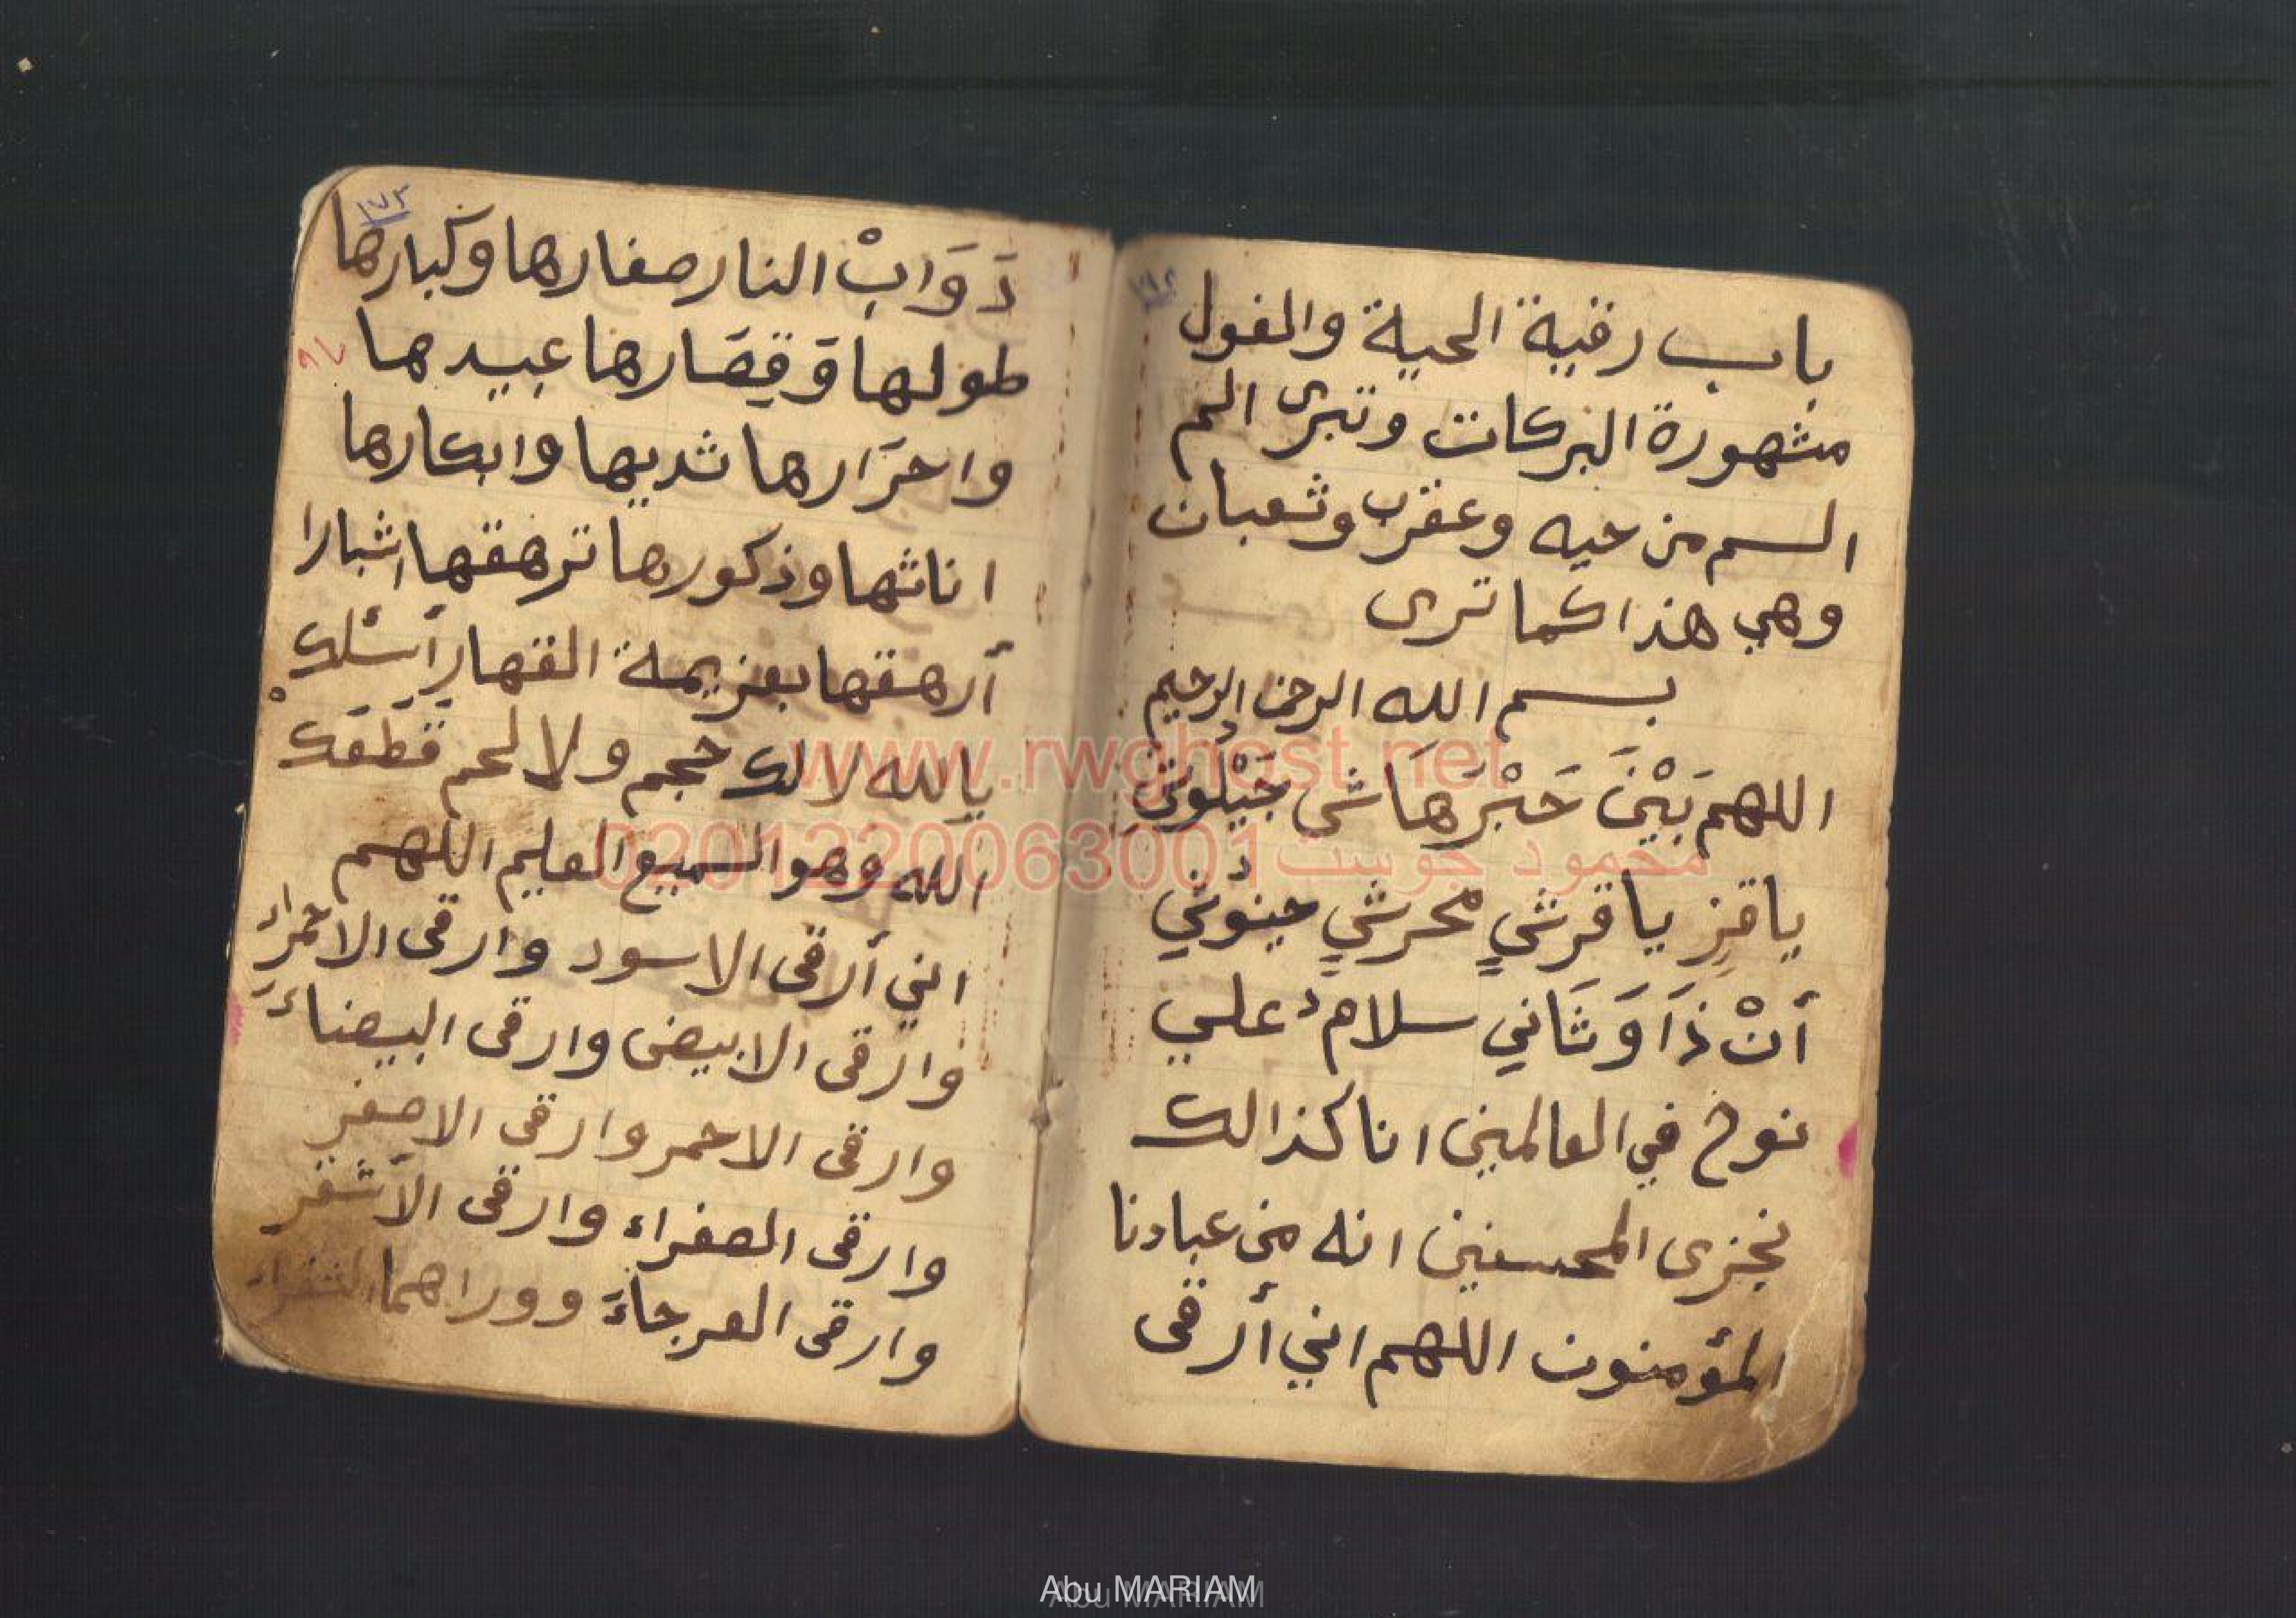 باب رقية الحية والغول
مشهورة البركات وتبرى الم
السم من حيه وعقرب وثعبان
وهي هذا كما ترى
بسم الله الرحمن الرحيم
اللهم بَيْنَ حَبْرَهَاشى جَيْلُوتي
ياقزِ ياقرشيٍ محرشيٍ حينوُني
أنْ ذَا وَثَاني سلامُ علي
نوح في العالمين انا كذالك
نجزى المحسنين انه من عبادنا
المؤمنون اللهم اني أرقى
١٧٢
١٧٣
دَوَابْ النار صغارها وكَبارها
طولها وَقِصَارها عبيدها
واحرَارها ثديها وابكارها
اناثها وذكورها ترهقها اشبارا
أرهقها بعزيمة القهار أسئلك
بالله لا لك حجم ولا لحم قَطَعَكْ
الله وهو السميع العليم اللهم
اني أرقى الاسود وارقى الاحمراءِ
وارقى الابيض وارقى البيضاءَ
وارقى الاحمر وارقى الاصفر
وارقى الصفراء وارقى الأشقر
وارقى العرجاءَ ووراهما الشقراء
٩٤
www.rwghost.net
محمود جوست 0201220063001
Abu MARIAM